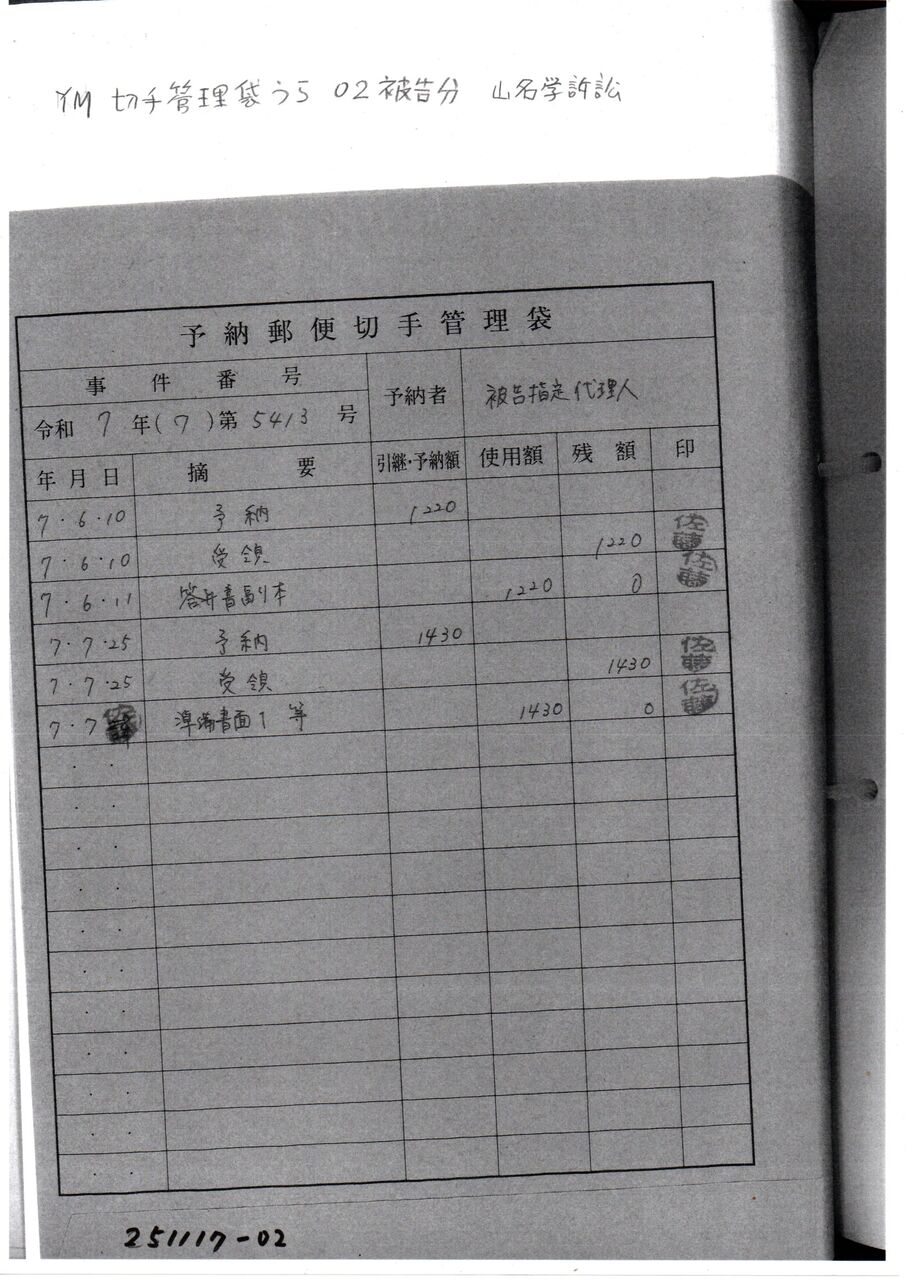 YM 切手管理袋う5 02被告分 山名学訴訟
予納郵便切手管理袋
事件番号 予納者 被告指定代理人
令和7年(ワ)第5413号
年月日 摘要 引継・予納額 使用額 残額 印
7・6・10 予納 1220
7・6・10 受領 1220 佐藤
7・6・11 答弁書副本 1220 0 佐藤
7・7・25 予納 1430
7・7・25 受領 1430 佐藤
7・7 佐藤 準備書面1等 1430 0 佐藤
251117-02